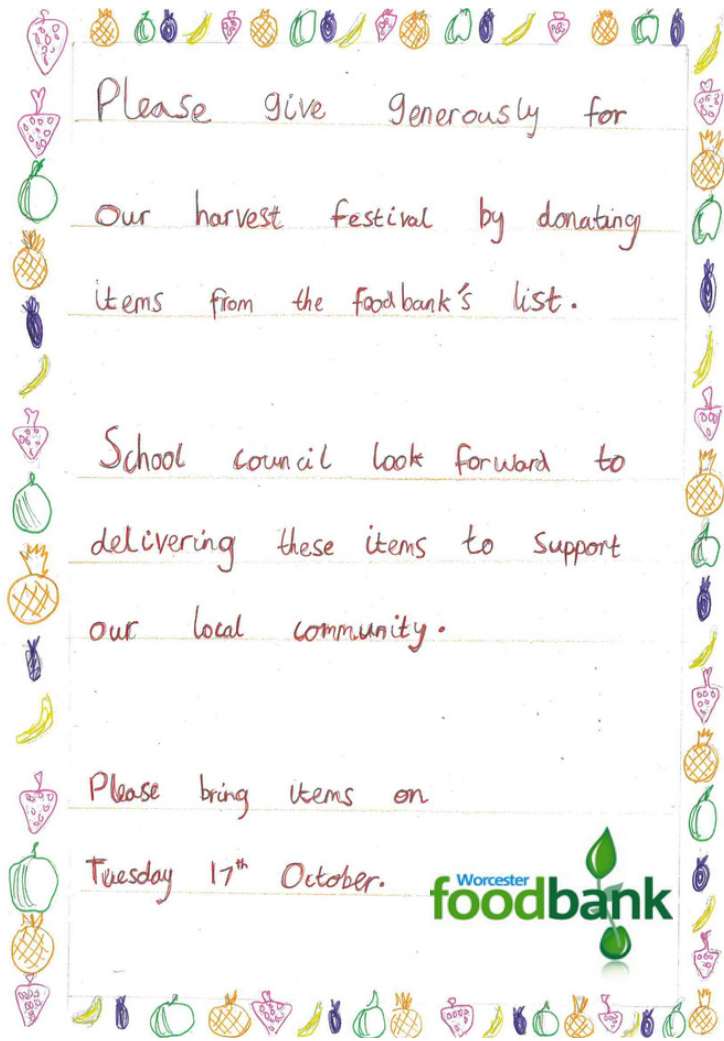 Please give generously for
our harvest festival by donating
items from the foodbank's list.
School council look forward to
delivering these items to support
our local community.
Please bring items on
Tuesday 17th October.
Worcester
foodbank